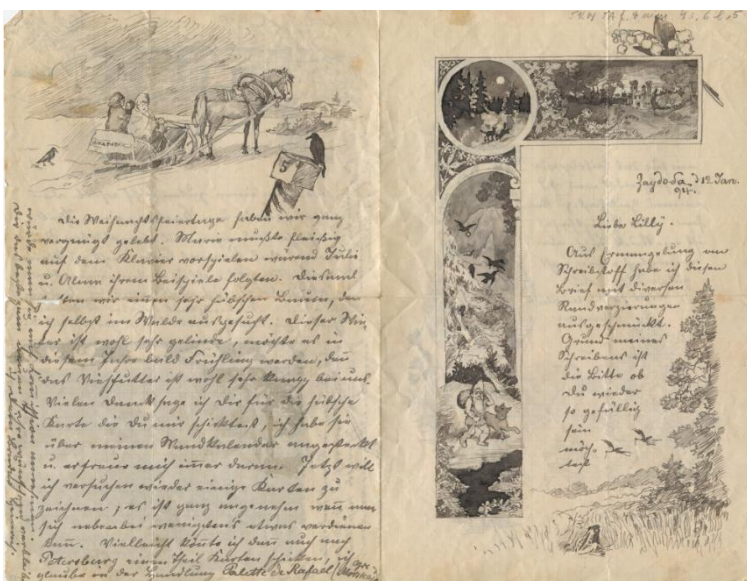 5
Die Weihnachtsfeiertage haben wir ganz
vergnügt gelebt. Marie mußte fleißig
auf dem Klavier vorspielen worauf Julie
u. ihrem Beispiele folgten. Diesmal
hatten wir einen sehr hübschen Baum, den
ich selbst im Walde ausgesucht. Dieser Win
ter ist wohl sehr gelinde, möchte es in
diesem Jahre bald Frühling werden, denn
das Viehfutter ist wohl sehr knapp bei uns.
Vielen Dank sage ich Dir für die hübsche
Karte die Du mir schicktest, ich habe sie
über meinen Wandkalender angesteckt
u. erfreue mich immer daran. Jetzt will
ich versuchen wieder einige Karten zu
zeichnen, es ist ganz angenehm wenn man
sich nebenbei wenigstens etwas verdienen
kann. Vielleicht könnte ich dann auch nach
Petersburg einen Theil Karten schicken, ich
glaube in der Handlung Palette de Rafael
d 12. Jan.
94.
Liebe Lilly.
Aus Ermangelung an
Schreibstoff habe ich diesen
Brief mit diversen
Randverzierungen
ausgeschmückt.
Grund meines
Schreibens ist
die Bitte ob
Du wieder
so gefällig
sein
möch
test